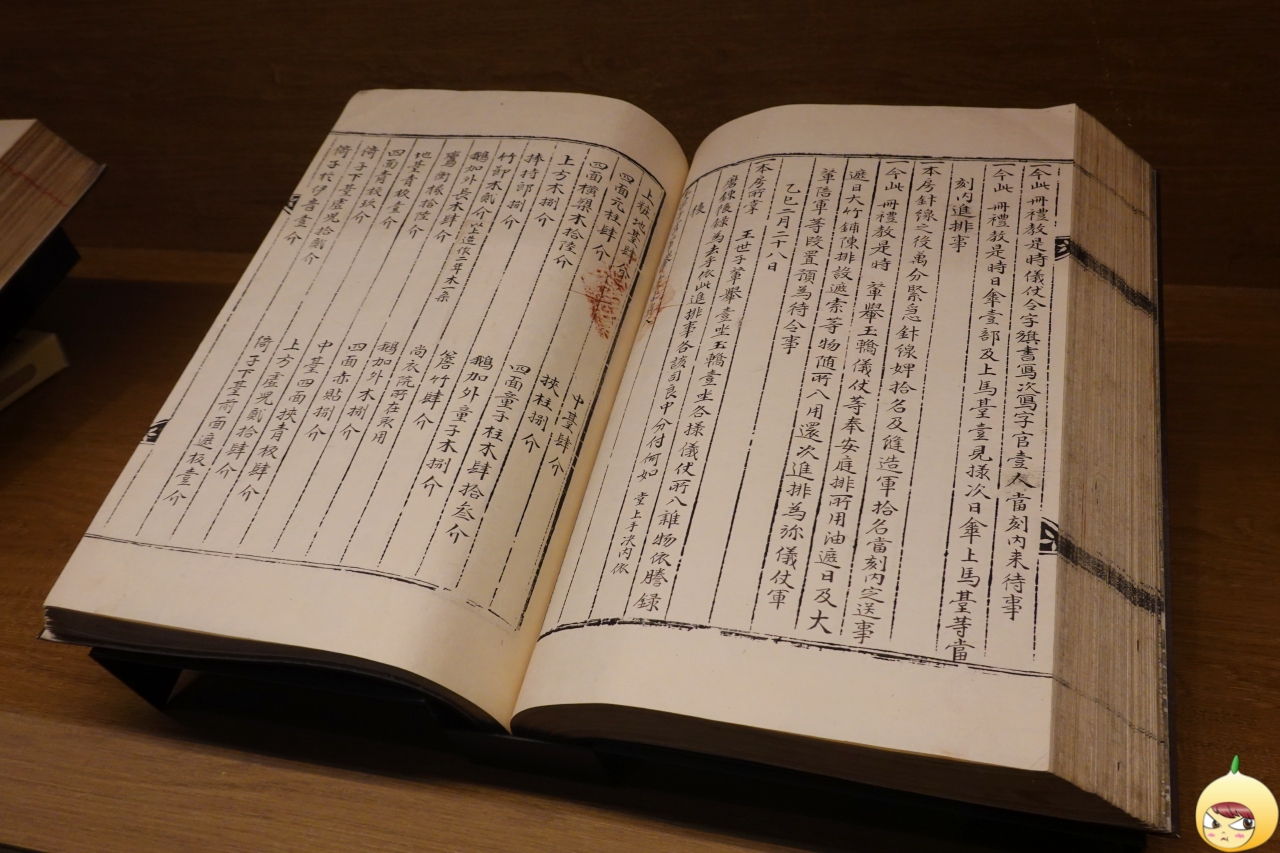 一今此 冊禮教是時儀仗令字旗書寫次寫字官壹人當刻內来待事
一今此 冊禮教是時日傘壹部及上馬臺壹見樣次日傘上馬臺等當
刻內進排事
一本房針線之後萬分緊急針線婢拾名及縫造軍拾名當刻內定送事
一今此 冊禮教是時 輦轝玉轎儀仗等奉安庭排所用油遮日及大
遮日大竹鋪陳排設遮索等物随所入用還次進排為旀儀仗軍
輦陪軍等段置預為待令事
乙巳二月二十八日
一本房所掌 王世子輦轝壹坐玉轎壹坐各樣儀仗所入雜物依謄錄
磨鍊後錄為去乎依此進排事各該司良中分付何如 堂上手决內依
後
上粧地臺肆介 中臺肆介
四面元柱肆介 挾柱捌介
四面橫樑木拾陸介 四面童子柱木肆拾叁介
上方木捌介 鵝加外童子木捌介
捧持郎捌介 簷竹肆介
竹郎木貳介 尚衣院所在取用
鵝加外長木肆介 鵝加外木捌介
鷰衝椽拾陸介 四面赤貼捌介
地臺青板壹介 中臺四面挾青板肆介
四面青板玖介 上方虛児貳拾肆介
倚子下臺虛児拾貳介 倚子下臺前面遮板壹介